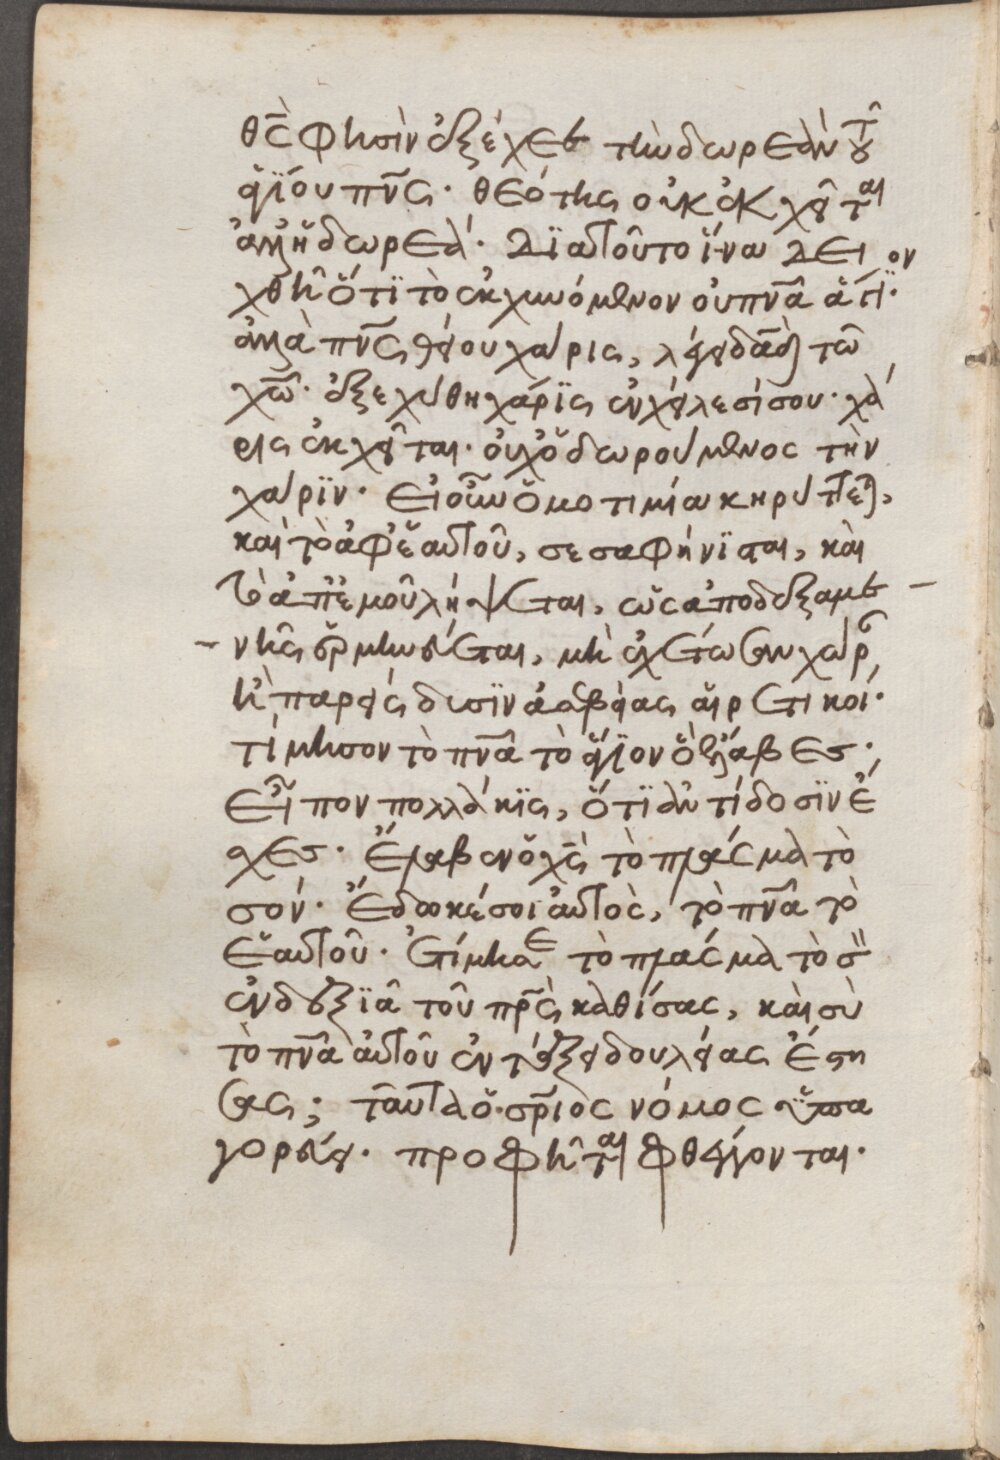 θς̄ φησὶν ἐξέχεε τὴν δωρεὰν τοῦ
ἁγίου πν̄ς· θεότης οὐκ ἐκχεῖται
ἀλλ' ἡ δωρεά· Διατοῦτο ἵνα δει
χθῆ ὅτι τὸ ἐκχυνόμενον οὐ πν̄α ἅγιον·
ἀλλὰ πν̄ς θείου χάρις, λέγει δᾱδ τῶ
χῶ· ἐξεχύθη χάρις ἐν χείλεσί σου· χά
ρις ἐκχεῖται· οὐχ ὁ δωρούμενος τὴν
χάριν· Εἰ οὖν ὁμοτιμία κηρύττεται,
καὶ τὸ ἀφ' ἑαυτοῦ, σεσαφήνισται, καὶ
τὸ ἀπ' ἐμοῦ λήψεται, ὡς ἀποδεξαμε
νης ἑρμηνεύεται, μὴ ἐχέτωσαν χώραν
ἢ παρείσδυσιν ἀσεβείας αἱρετικοί·
τίμησον τὸ πν̄α τὸ ἅγιον ὃ ἔλαβες·
Εἶπον πολλάκις, ὅτι ἀντίδοσιν ἔ
χεις· Ἔλαβεν ὁ χς̄ τὸ πλάσμα τὸ
σόν· Ἔδωκέ σοι αὐτὸς, τὸ πν̄α τὸ
ἑαυτοῦ· Ἐτίμησε τὸ πλάσμα τὸ σὸν
ἐν δεξιᾶ τοῦ πρς̄ καθίσας, καὶ σὺ
τὸ πν̄α αὐτοῦ ἐν τάξει δουλείας ἔστη
σας; ταῦτα ὁ σρ̄ιος νόμος ὑπα
γορεύει· προφῆται φθέγγονται·